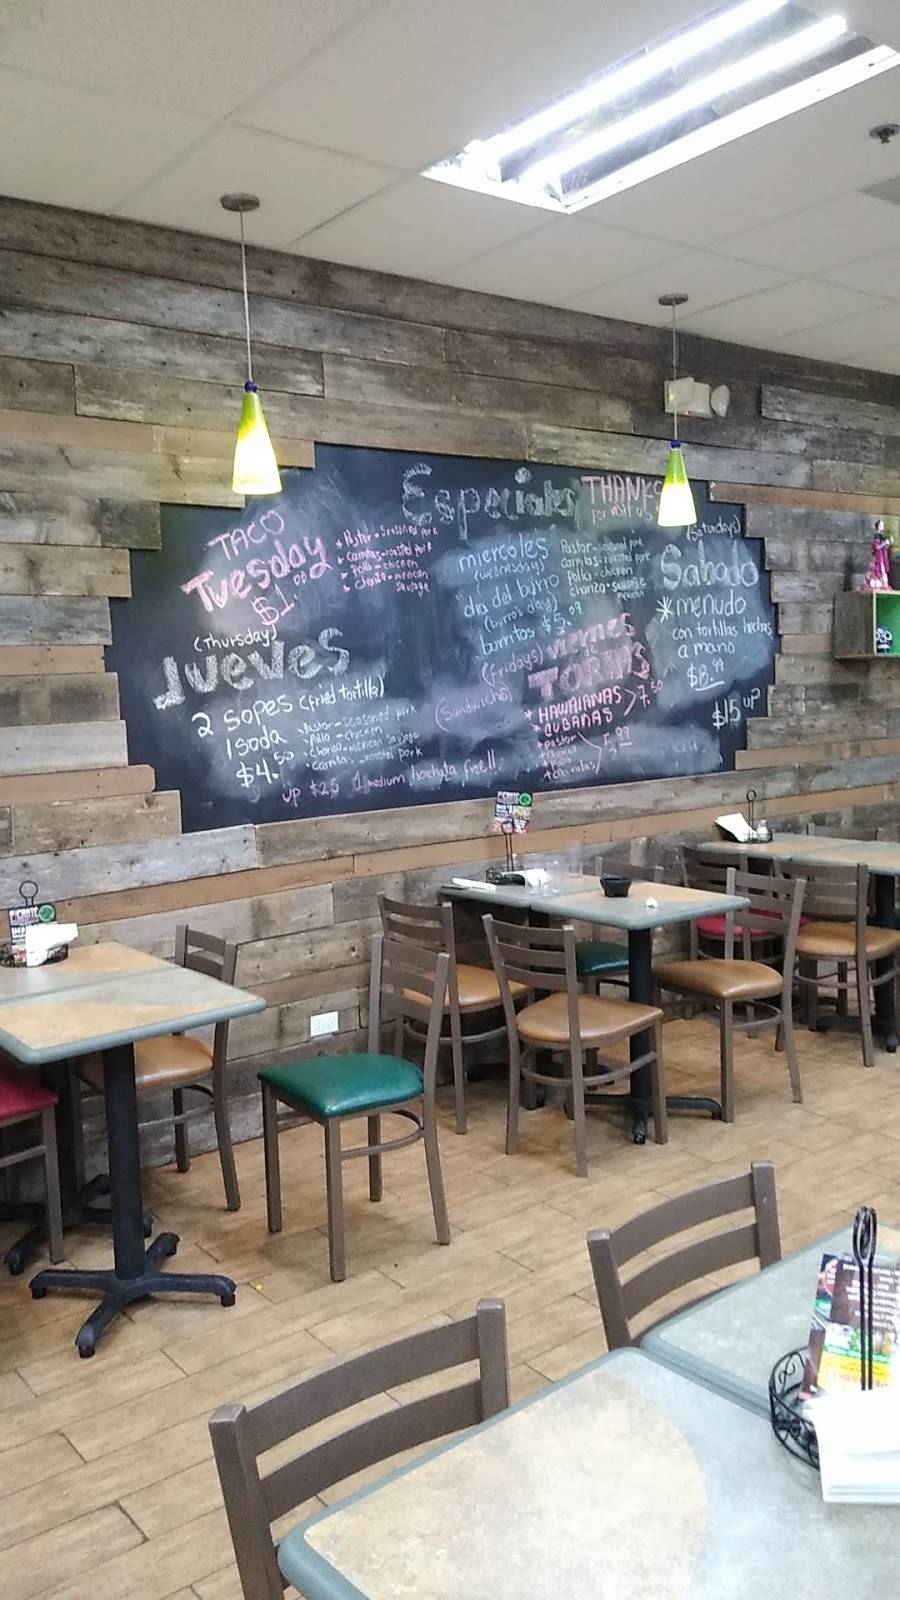 Especiales
THANKS
for visit us
TACO
Tuesday
$1.00
* Pastor - seasoned pork
* carnitas - roasted pork
* pollo - chicken
* chorizo - mexican
sausage
(Thursday)
Jueves
2 sopes (fried tortilla)
1 soda
$4.50
Pastor - seasoned pork
Pollo - chicken
Chorizo - mexican sausage
Carnitas - roasted pork
up $25 1 medium horchata free!!,
miercoles
(wednesdays)
dia del burro
(burro's day)
burritos $5.99
Pastor - seasoned pork
Carnitas - roasted pork
Pollo - chicken
chorizo - sausage
mexican
(Fridays) viernes
de
TORTAS
(Sandwichs)
* HAWAIIANAS
* CUBANAS
7.50
* pastor
* chorizo
* pollo
* carnitas
5.99
(Saturdays)
Sabado
* menudo
con tortillas hechas
a mano
$8.99
$15 up
PICANTE